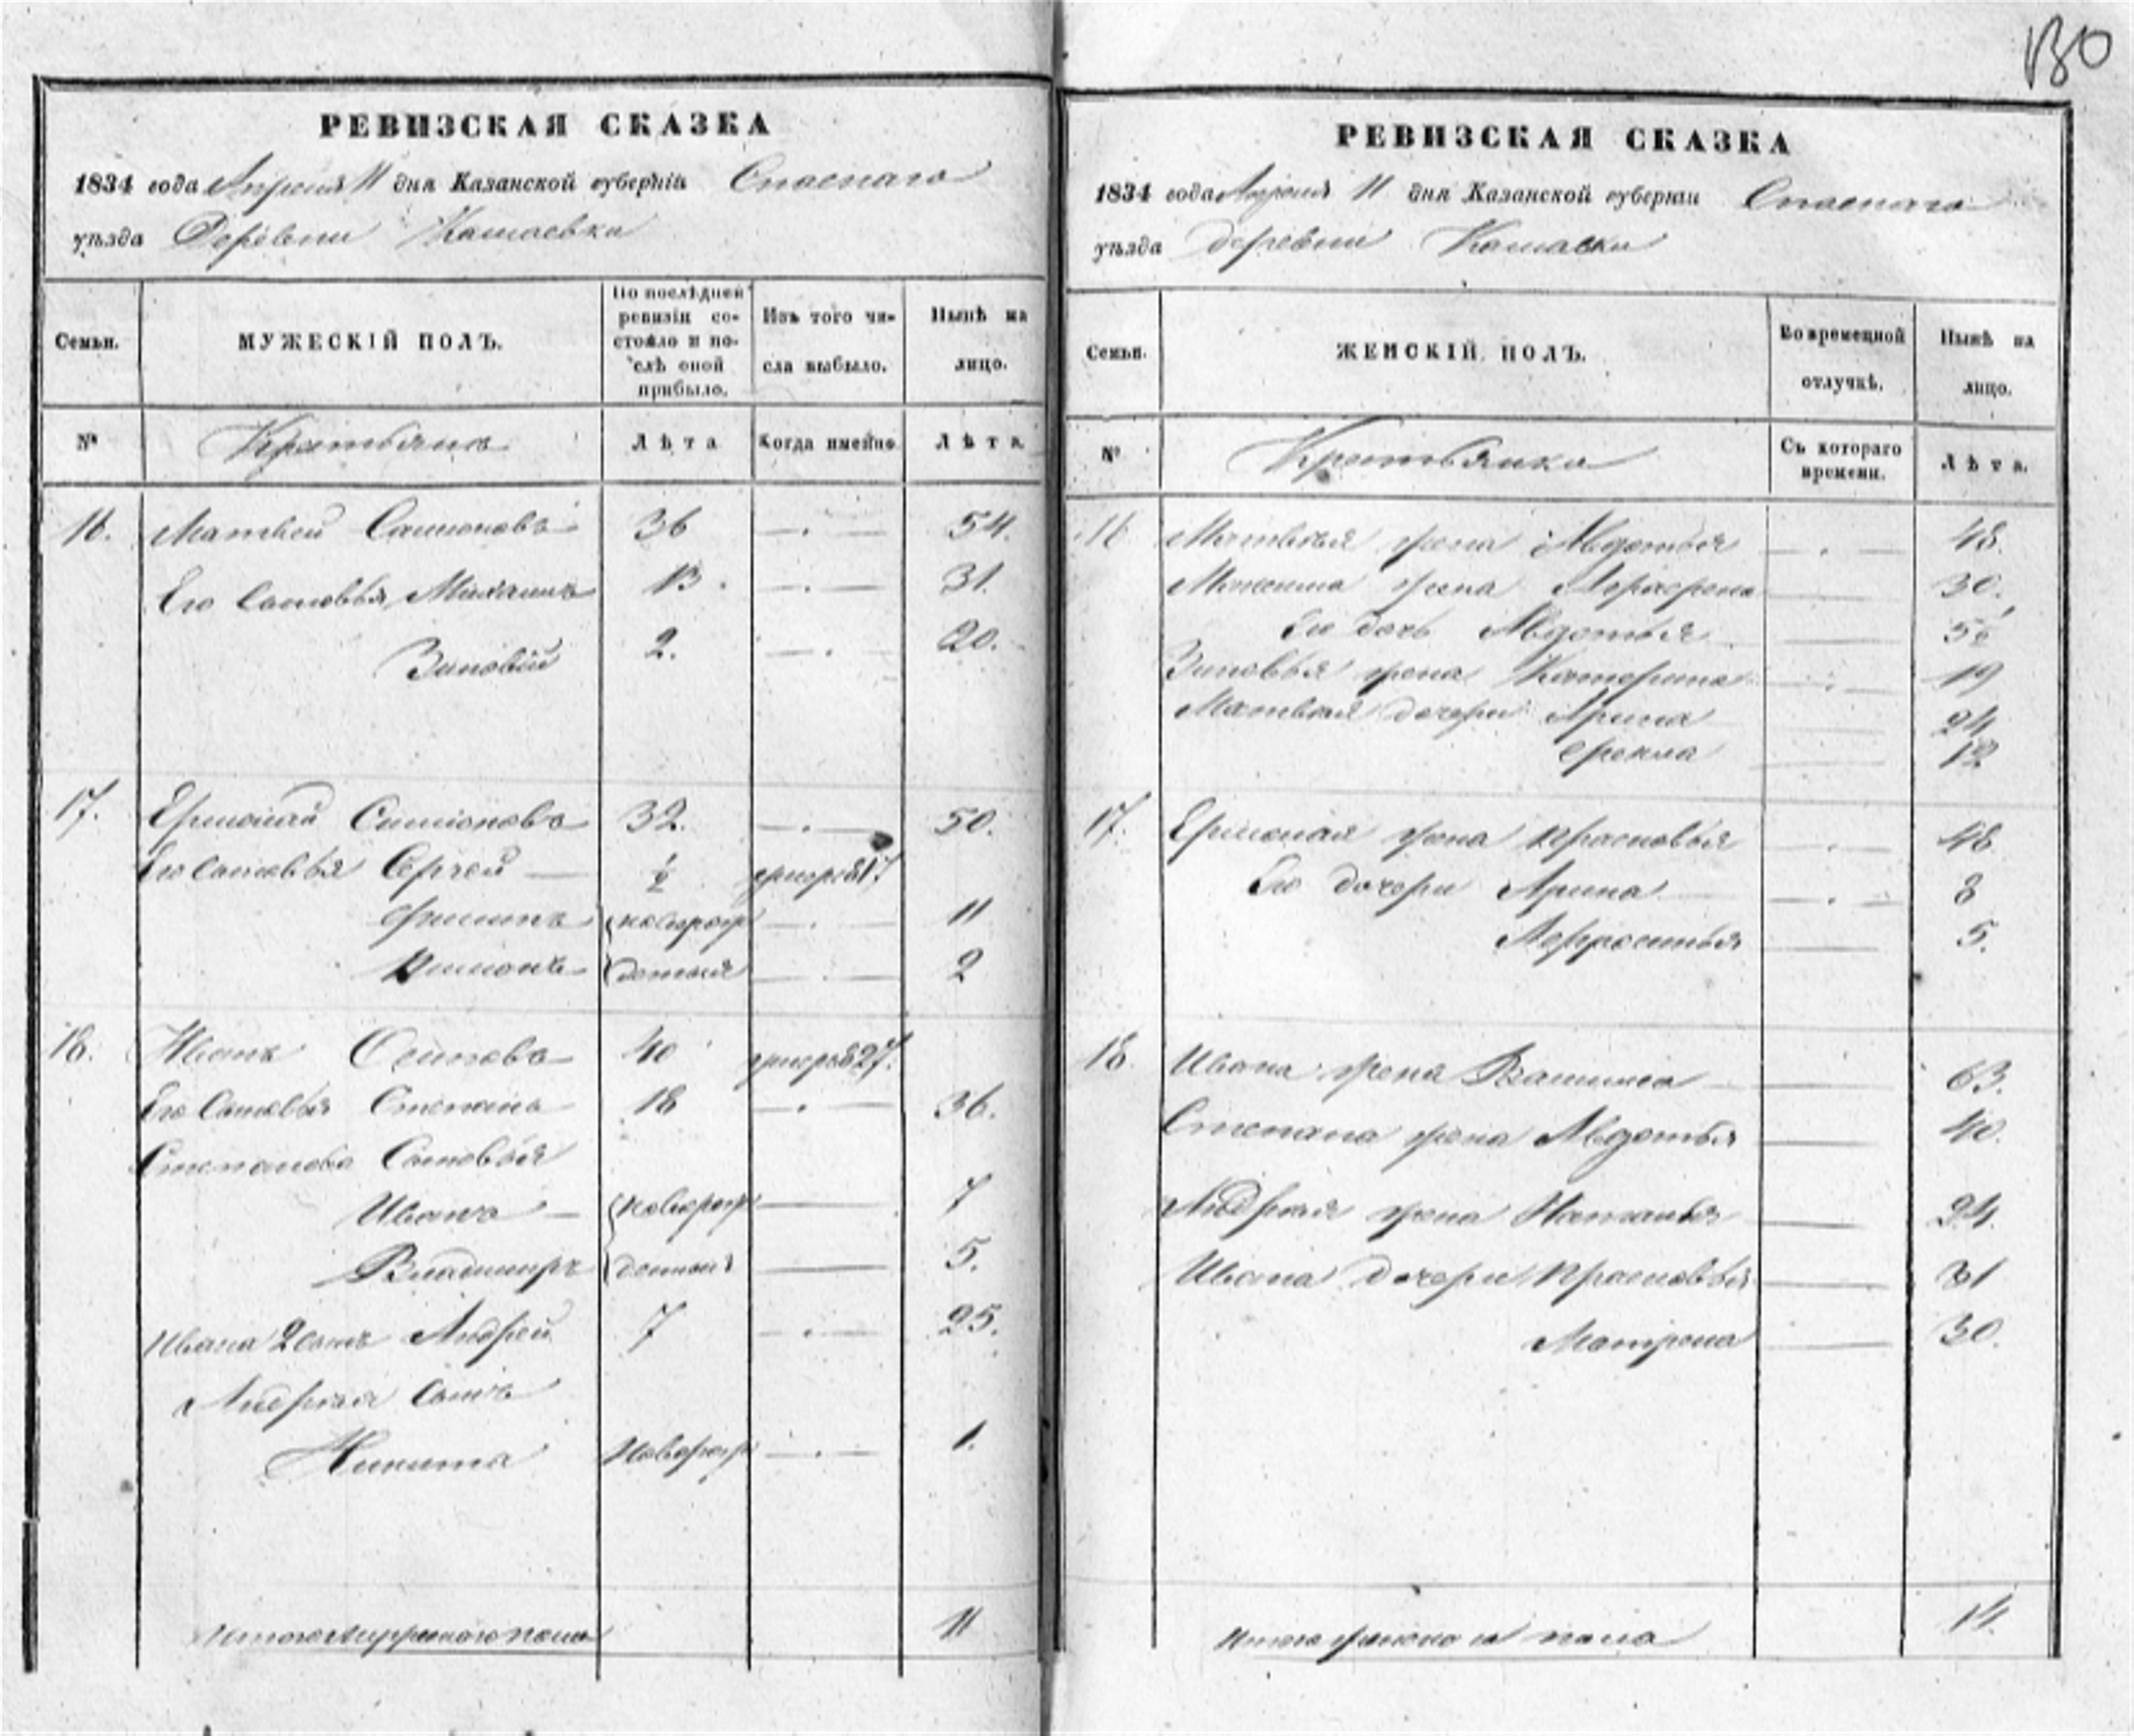 130
РЕВИЗСКАЯ СКАЗКА
1834 года Апреля 11 дня Казанской губерніи Спаскаго
уѣзда Деревни Камаевки
Семьи.
МУЖЕСКІЙ ПОЛЪ.
По послѣдней ревизіи состояло и послѣ оной прибыло.
Изъ того числа выбыло.
Нынѣ на лицо.
№
Крестьяне
Лѣта
Когда именно
Лѣта
16. Матвей Самионовъ 36 54.
Его Сыновья Михаилъ 13. 31.
Зиновій 2. 20.
17. Ермолай Симіоновъ 32. 50.
Его Сыновья Сергей ½ 17.
Филипъ новорож 11
денные 2
18. Иванъ Осиповъ 40 27.
Его Сыновья Степанъ 18 36.
Степанова Сыновья
Иванъ новорож 7
Владимиръ денныя 5.
Ивана 2 сынъ Андрей 7 25.
Андрея Сынъ
Никита Новорож 1.
Итого Мужескаго пола 11
РЕВИЗСКАЯ СКАЗКА
1834 года Апреля 11 дня Казанской губерніи Спаскаго
уѣзда деревни
Семьи.
ЖЕНСКІЙ ПОЛЪ.
Во временной отлучкѣ.
Нынѣ на лицо.
№
Крестьянки
Съ котораго времени.
Лѣта.
16 Матвея жена Авдотья 48.
жена 30.
Ея дочь Авдотья
Зиновья жена Катерина 19
Матвея дочери Арина 24
Фекла 12
17. Ермолая жена Прасковья 48
Его дочери Арина 8
5.
18. Ивана жена 63.
Степана жена Авдотья 40.
Андрея жена Наталья 24.
Ивана дочери Прасковья 31
Матрена 30.
Итого женскаго пола 14.